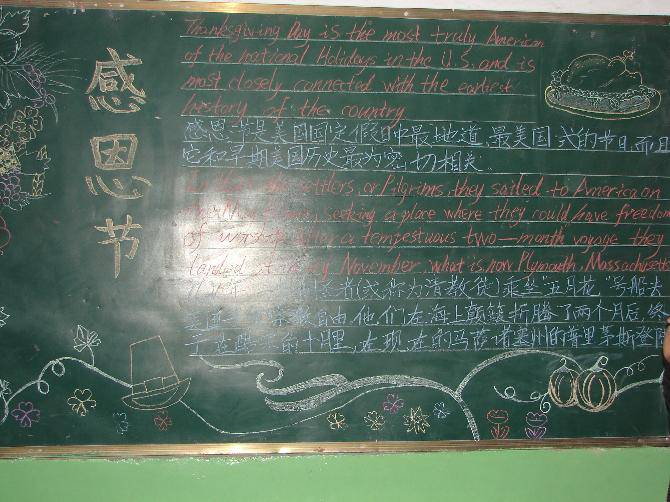 感恩节
Thanksgiving Day is the most truly American
of the national Holidays in the U.S. and is
most closely connected with the earliest
history of the country
感恩节是美国国定假日中最地道、最美国式的节日,而且
它和早期美国历史最为密切相关.
settlers, or Pilgrims, they sailed to America on
seeking a place where they could have freedom
of worship. a tempestuous two—month voyage they
November, what is now Plymouth, Massachusetts
者(或称为清教徒)乘坐"五月花"号船去
自由,他们在海上颠簸折腾了两个月后,终
的十一月里,在现在的马萨诸塞州的普里茅斯登陆